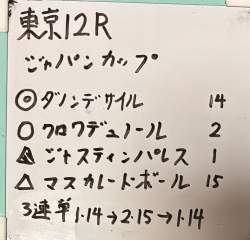 東京12R
ジャパンカップ
◎ ダノンデサイル 14
○ クロワデュノール 2
▲ ジャスティンパレス 1
△ マスカレードボール 15
3連単 1.14→2.15→1.14